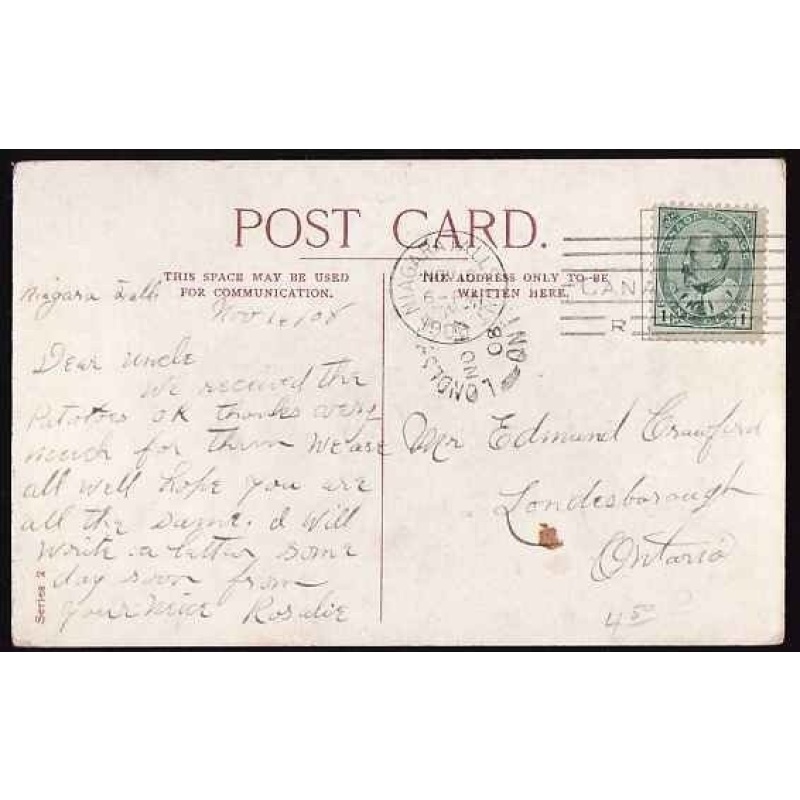 POST CARD.
THIS SPACE MAY BE USED
FOR COMMUNICATION.
THE ADDRESS ONLY TO BE
WRITTEN HERE.
CANADA POSTAGE
1 1
CANA
R
NIAGARA FALLS
LONDES
NO
08
ONT
Niagara Falls
Nov 08
Dear Uncle
We received the
Patotoes OK thanks very
much for them We are
all well hope you are
all the same. I will
write a letter some
day soon from
your niece Rosalie
Mr Edmund Crawford
Londesborough
Ontario
4 50
Series 2